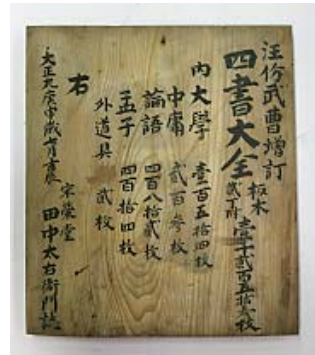 汪份武曹增訂
四書大全 板木 壹千貳百五拾参枚
貳丁附
内 大學 壹百五拾四枚
中庸 貳百参枚
論語 四百八拾貳枚
孟子 四百拾四枚
外道具 貳枚
右
大正九庚申歳七月吉辰
宋榮堂
田中太右衛門誌